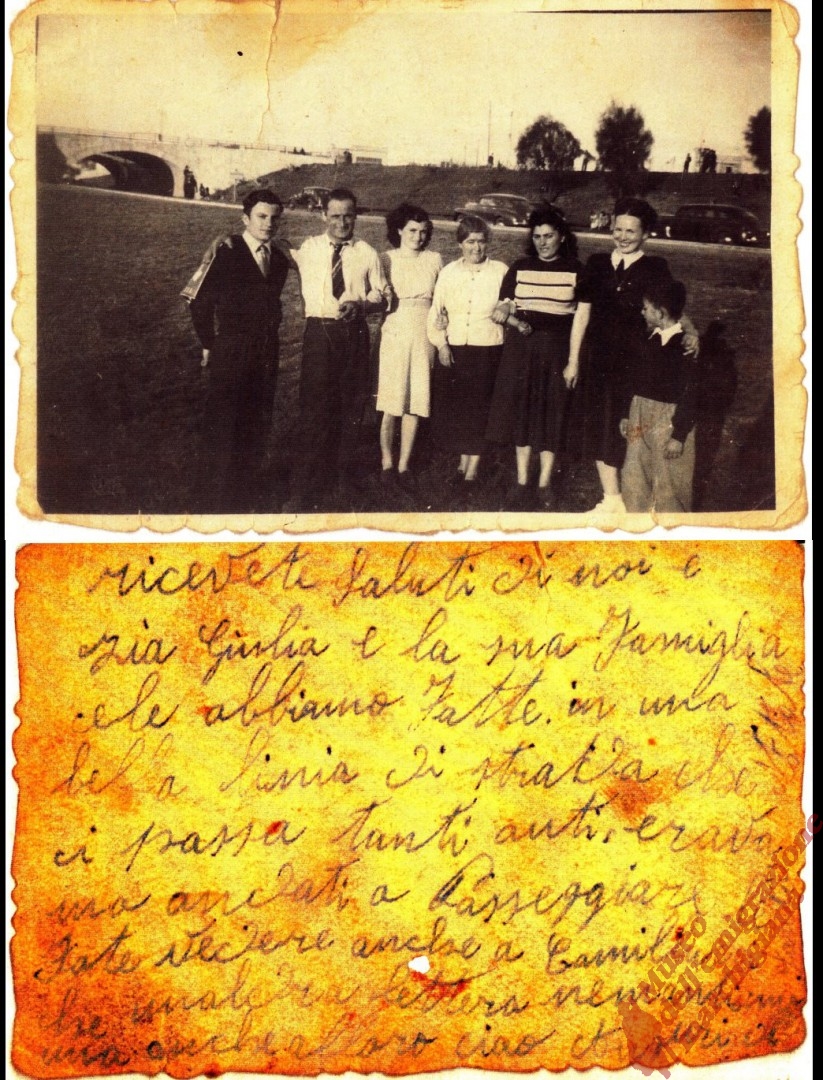 ricevete saluti di noi e
zia Giulia e la sua Famiglia
cele abbiamo Fatte in una
bella linia di stradda che
ci passa tanti auti, erava
mo andati a Passeggiare
Fate vedere anche a Camillo
che qualdra lettera nemandiamo
una anche alloro ciao
Museo
dell'emigrazione